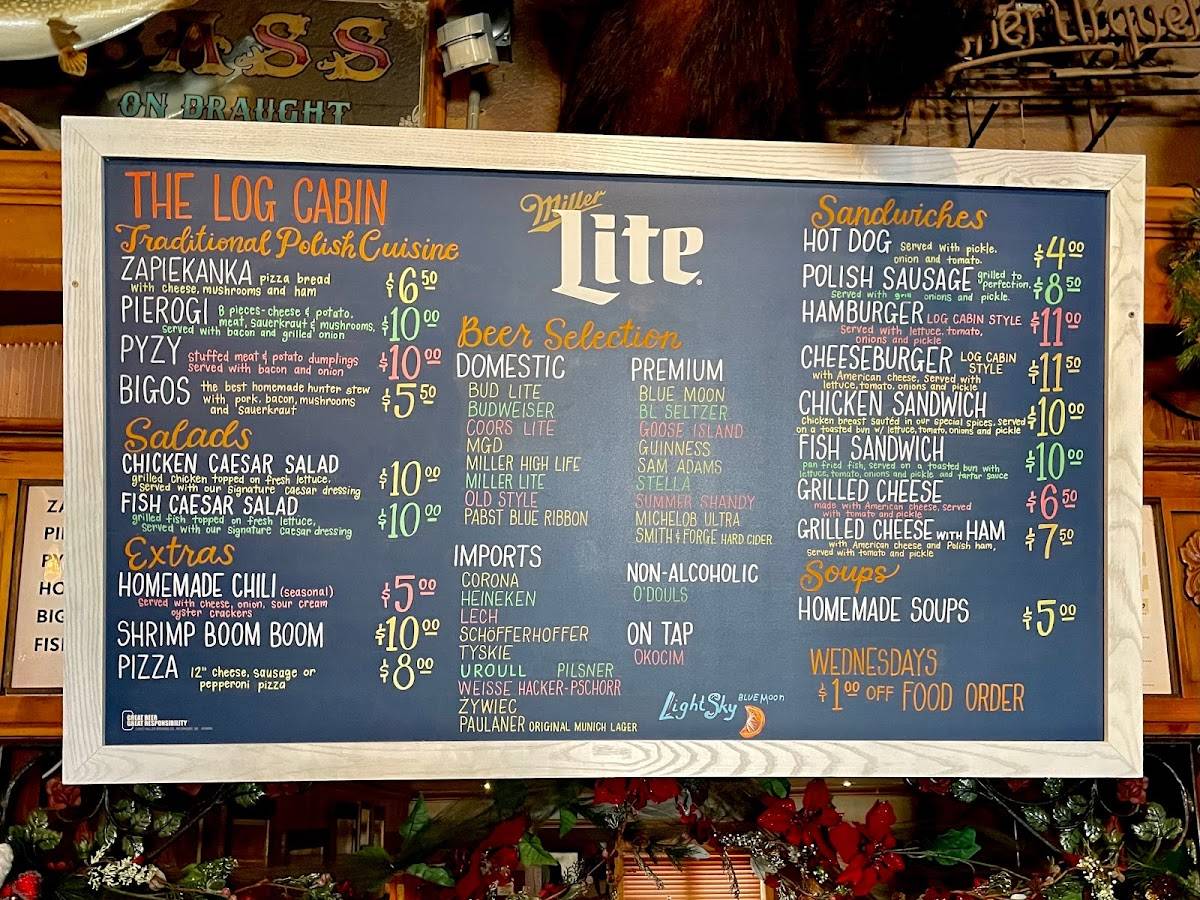 BASS
ON DRAUGHT
THE LOG CABIN
Traditional Polish Cuisine
ZAPIEKANKA pizza bread $6.50
with cheese, mushrooms and ham
PIEROGI 8 pieces-cheese & potato, $10.00
meat, sauerkraut & mushrooms,
served with bacon and grilled onion
PYZY stuffed meat & potato dumplings $10.00
served with bacon and onion
BIGOS the best homemade hunter stew $5.50
with, pork, bacon, mushrooms
and sauerkraut
Salads
CHICKEN CAESAR SALAD $10.00
grilled chicken topped on fresh lettuce,
served with our signature caesar dressing
FISH CAESAR SALAD $10.00
grilled fish topped on fresh lettuce,
served with our signature caesar dressing
Extras
HOMEMADE CHILI (seasonal) $5.00
served with cheese, onion, sour cream
oyster crackers
SHRIMP BOOM BOOM $10.00
PIZZA 12" cheese, sausage or $8.00
pepperoni pizza
GREAT BEER
GREAT RESPONSIBILITY
Miller
Lite
Beer Selection
DOMESTIC
BUD LITE
BUDWEISER
COORS LITE
MGD
MILLER HIGH LIFE
MILLER LITE
OLD STYLE
PABST BLUE RIBBON
IMPORTS
CORONA
HEINEKEN
LECH
SCHÖFFERHOFFER
TYSKIE
UROULL PILSNER
WEISSE HACKER-PSCHORR
ŻYWIEC
PAULANER ORIGINAL MUNICH LAGER
PREMIUM
BLUE MOON
BL SELTZER
GOOSE ISLAND
GUINNESS
SAM ADAMS
STELLA
SUMMER SHANDY
MICHELOB ULTRA
SMITH & FORGE HARD CIDER
NON-ALCOHOLIC
O'DOULS
ON TAP
OKOCIM
LightSky BLUE MOON
Sandwiches
HOT DOG served with pickle, $4.00
onion and tomato.
POLISH SAUSAGE grilled to perfection, $8.50
served with grill onions and pickle.
HAMBURGER LOG CABIN STYLE $11.00
served with lettuce, tomato,
onions and pickle
CHEESEBURGER LOG CABIN STYLE $11.50
with American cheese, served with
lettuce, tomato, onions and pickle
CHICKEN SANDWICH $10.00
chicken breast sautéd in our special spices, served
on a toasted bun w/ lettuce, tomato, onions and pickle
FISH SANDWICH $10.00
pan fried fish, served on a toasted bun with
lettuce, tomato, onions and pickle and tartar sauce
GRILLED CHEESE $6.50
made with American cheese, served
with tomato and pickle
GRILLED CHEESE WITH HAM $7.50
with American cheese and Polish ham,
served with tomato and pickle
Soups
HOMEMADE SOUPS $5.00
WEDNESDAYS
$1.00 OFF FOOD ORDER